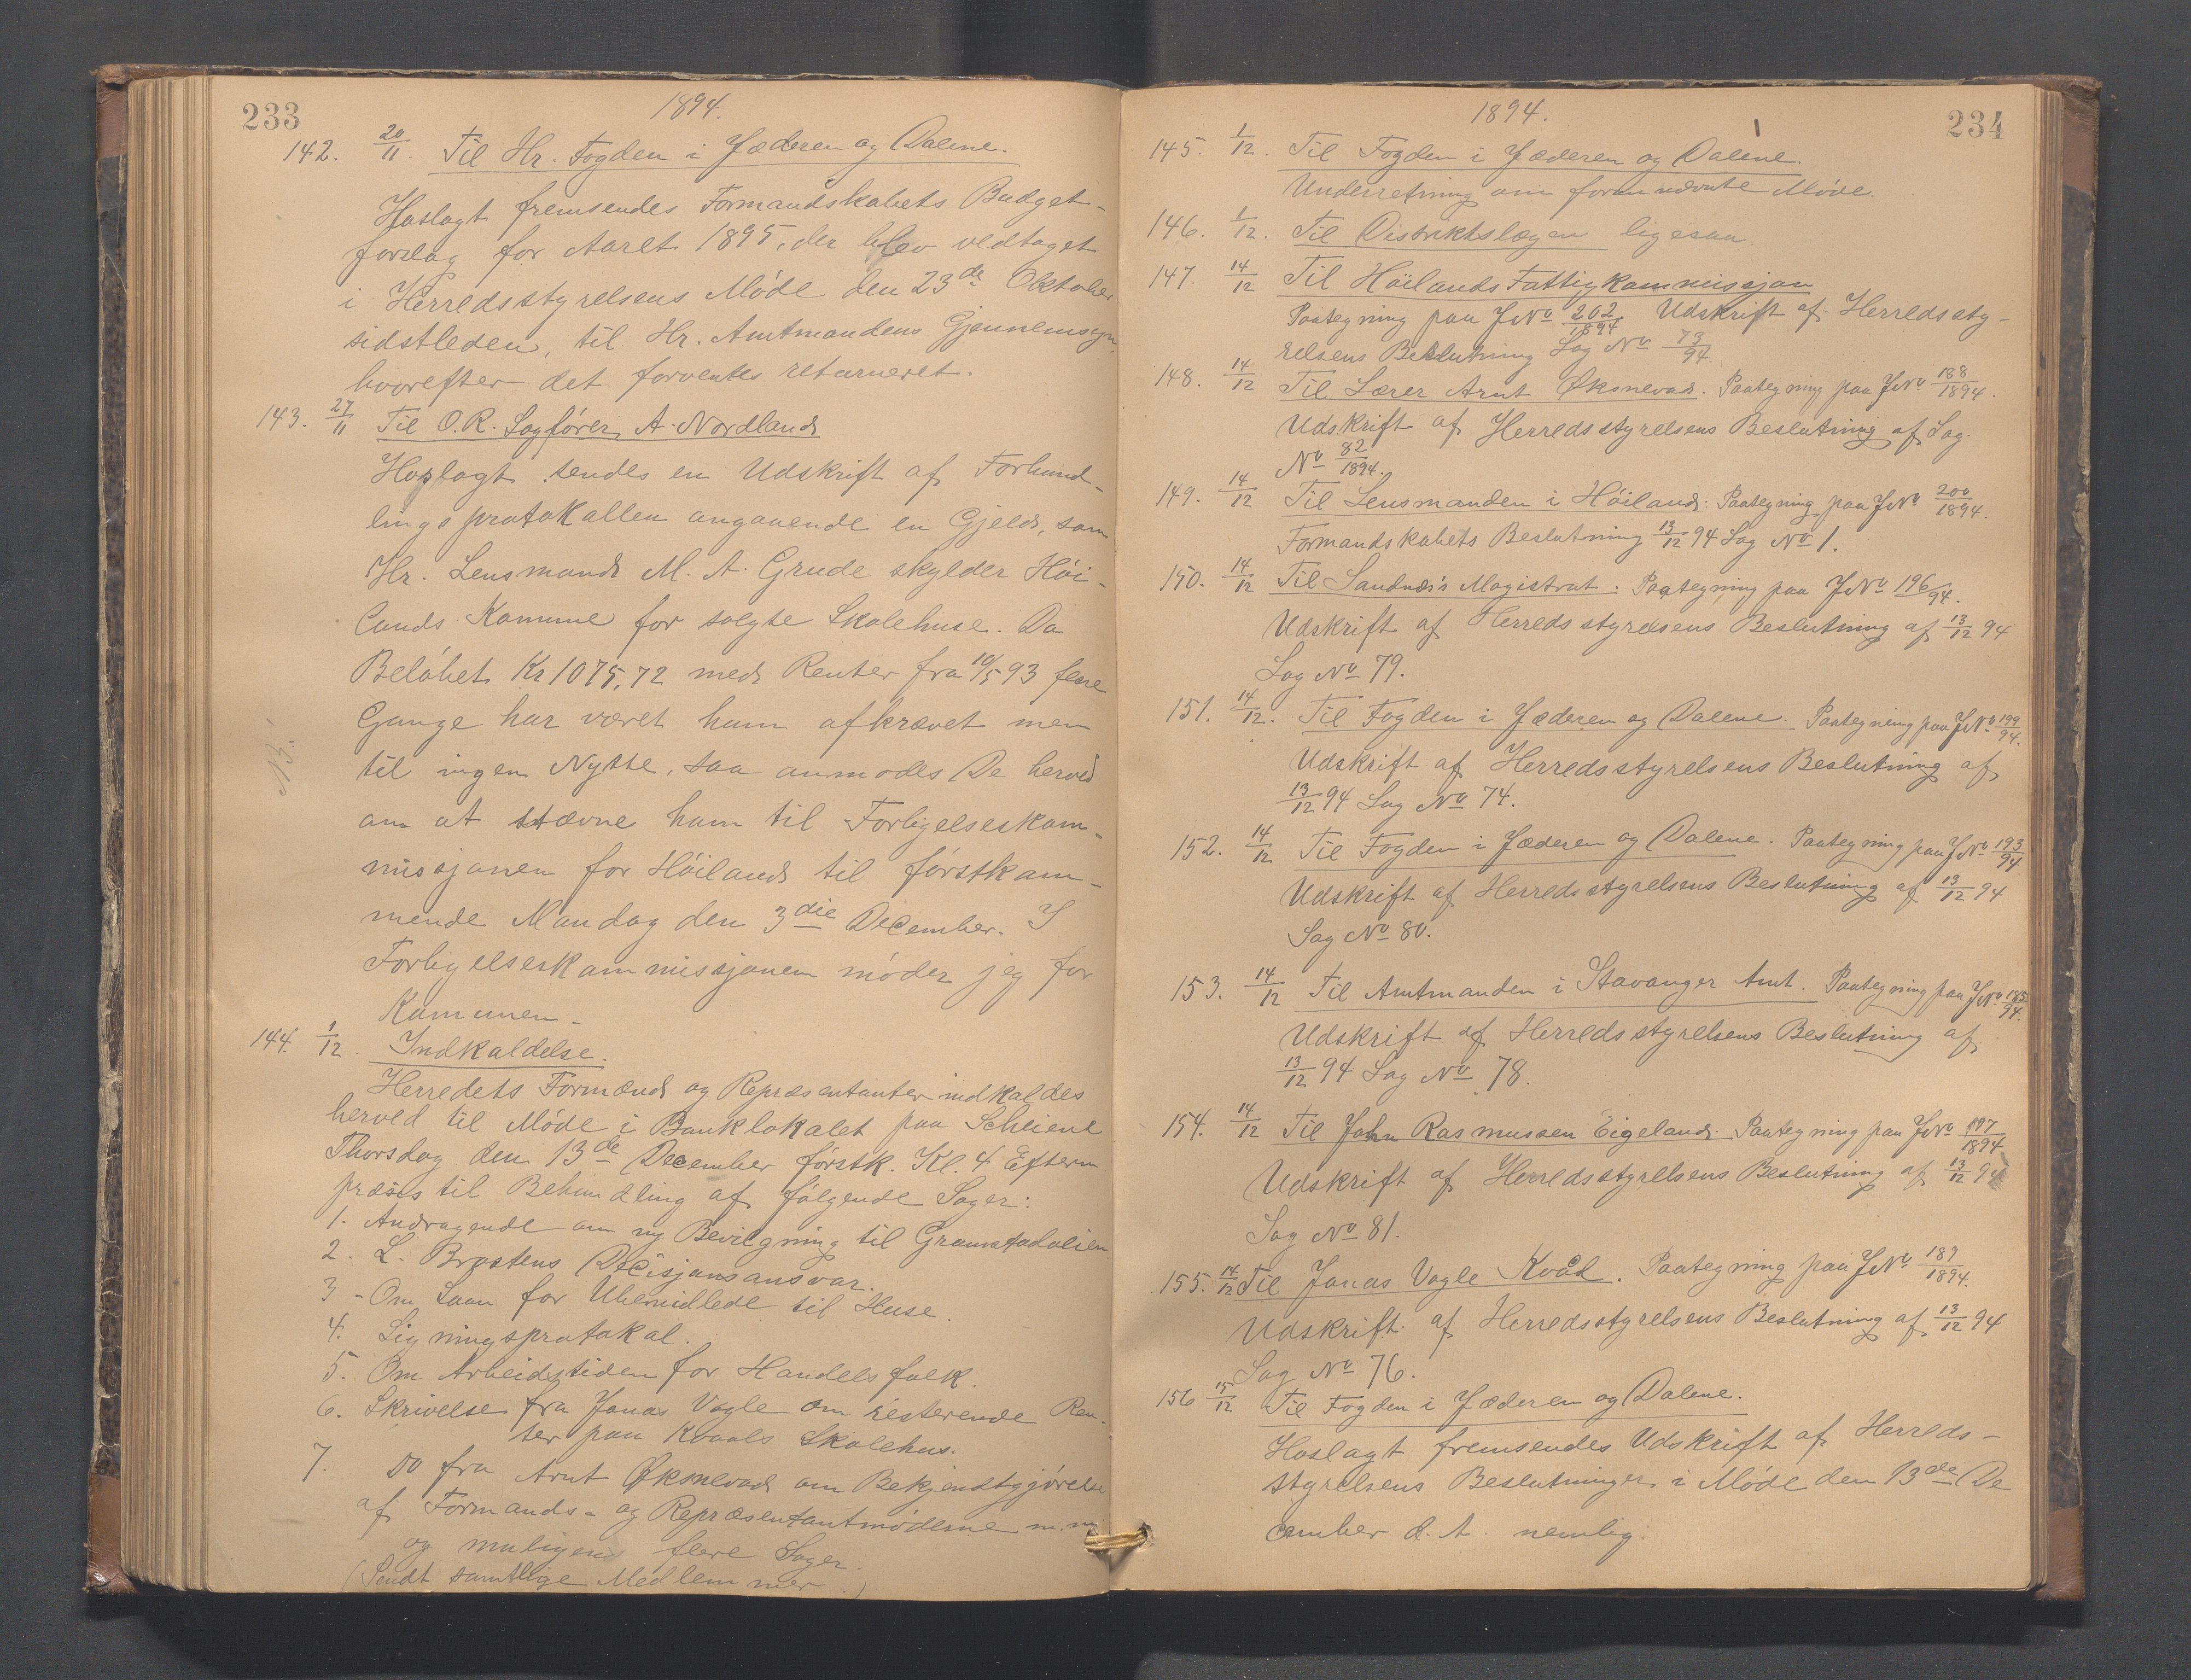 233
1894.
142. 20/11. Til Hr. Fogden i Jæderen og Dalene.
Hoslagt fremsendes Formandskabets Budget-
forslag for Aaret 1895, der blev vedtaget
i Herredsstyrelsens Møde den 23de Oktober
sidstleden, til Hr. Amtmandens Gjennemsyn,
hvorefter det forventes returneret.
143. 27/11 Til O.R. Sagfører A. Nordland
Hoslagt sendes en Udskrift af Forhand-
lingsprotokollen angaaende en Gjeld, som
Hr. Lensmand M. A. Grude skylder Høi-
lands Komune for solgte Skolehuse. Da
Beløbet Kr 1075,72 med Renter fra 10/5 93 flere
Gange har været ham afkrævet men
til ingen Nytte, saa anmodes De herved
NB.
om at stævne ham til Forligelseskom-
missjonen for Høiland til førstkom-
mende Mandag den 3die December. I
Forligelseskommissjonen møder jeg for
Kommunen.
144. 1/12 Indkaldelse.
Herredets Formænd og Repræsentanter indkaldes
herved til Møde i Banklokalet paa Scheiene
Thorsdag den 13de December førstk. Kl. 4 Efterm
præsis til Behandling af følgende Sager:
1. Andragende om ny Bevilgning til Gramstadalien
2. L. Brastens Decisjonsansvar.
3 - Om Laan for Ubemidlede til Huse.
4. Ligningsprotokol.
5. Om Arbeidstiden for Handelsfolk.
6. Skrivelse fra Jonas Vagle om resterende Ren-
ter paa Kvaals Skolehus.
7. Do fra Arnt Øksnevad om Bekjendtgjørelse
af Formands- og Repræsentantmøderne m.m
og muligens flere Sager.
(Sendt samtlige Medlemmer.)
234
1894.
145. 1/12. Til Fogden i Jæderen og Dalene.
Underretning om forannævnte Møde.
146. 1/12. Til Distriktslægen ligesaa.
147. 14/12 Til Höilands Fattigkommissjon
Paategning paa JNo 202/1894 Udskrift af Herredssty-
relsens Beslutning Sag No 73/94.
148. 14/12 Til Lærer Arnt Øksnevad. Paategning paa JNo 188/1894.
Udskrift af Herredsstyrelsens Beslutning af Sag.
No 82/1894.
149. 14/12 Til Lensmanden i Høiland. Paategning paa JNo 200/1894.
Formandskabets Beslutning 13/12 94 Sag No 1.
150. 14/12 Til Sandnæs's Magistrat. Paategning paa JNo 196/94.
Udskrift af Herredsstyrelsens Beslutning af 13/12 94
Sag No 79.
151. 14/12. Til Fogden i Jæderen og Dalene. Paategning paa JNo 199/94.
Udskrift af Herredsstyrelsens Beslutning af
13/12 94 Sag No 74.
152. 14/12 Til Fogden i Jæderen og Dalene. Paategning paa JNo 193/94
Udskrift af Herredsstyrelsens Beslutning af 13/12 94
Sag No 80.
153. 14/12 Til Amtmanden i Stavanger Amt. Paategning paa JNo 185/94.
Udskrift af Herredsstyrelsens Beslutning af
13/12 94 Sag No 78.
154. 14/12 Til John Rasmussen Eigeland. Paategning paa JNo 197/1894
Udskrift af Herredsstyrelsens Beslutning af 13/12 94
Sag No 81.
155. 14/12 Til Jonas Vagle Kvål. Paategning paa JNo 189/1894.
Udskrift af Herredsstyrelsens Beslutning af 13/12 94
Sag No 76.
156 15/12 Til Fogden i Jæderen og Dalene.
Hoslagt fremsendes Udskrift af Herreds-
styrelsens Beslutninger i Møde den 13de De
cember d. A. nemlig: